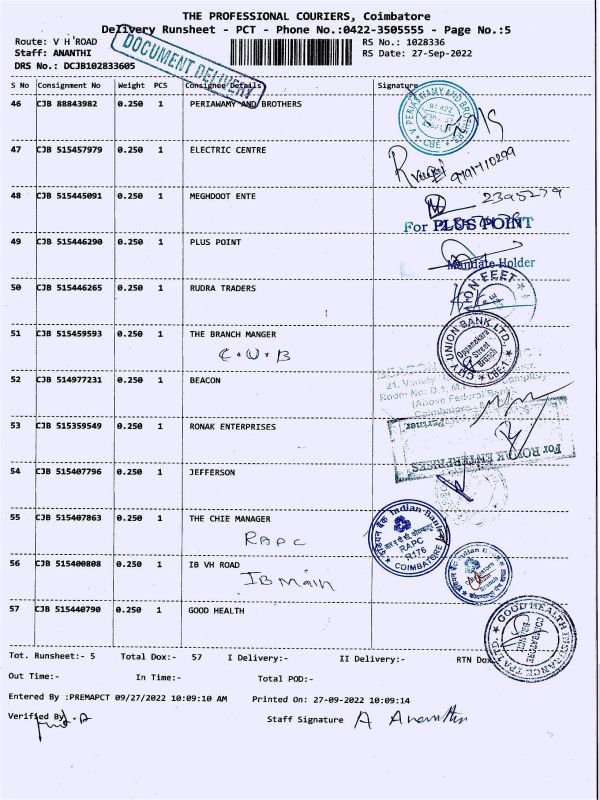 THE PROFESSIONAL COURIERS, Coimbatore
Delivery Runsheet - PCT - Phone No.:0422-3505555 - Page No.:5
Route: V H ROAD
RS No.: 1028336
Staff: ANANTHI
RS Date: 27-Sep-2022
DRS No.: DCJB102833605
DOCUMENT DELIVERY
S No Consignment No Weight PCS Consignee Details Signature
46 CJB 88843982 0.250 1 PERIAWAMY AND BROTHERS
V. PERIASWAMY AND BROTHERS
CBE
47 CJB 515457979 0.250 1 ELECTRIC CENTRE
48 CJB 515445091 0.250 1 MEGHDOOT ENTE
2395279
For PLUS POINT
49 CJB 515446290 0.250 1 PLUS POINT
Mandate Holder
50 CJB 515446265 0.250 1 RUDRA TRADERS
51 CJB 515459593 0.250 1 THE BRANCH MANGER
C.U.B
CITY UNION BANK LTD.,
Oppanakara
Street
Branch
CBE-1
52 CJB 514977231 0.250 1 BEACON
(Above Federal Bank
Coimbatore
53 CJB 515359549 0.250 1 RONAK ENTERPRISES
Partner
For RONAK ENTERPRISES
54 CJB 515407796 0.250 1 JEFFERSON
55 CJB 515407863 0.250 1 THE CHIE MANAGER
RAPC
इंडियन बैंक Indian Bank
RAPC
R176
COIMBATORE
56 CJB 515400808 0.250 1 IB VH ROAD
IB Main
57 CJB 515440790 0.250 1 GOOD HEALTH
GOOD HEALTH INSURANCE TPA LTD
COIMBATORE
BRANCH
Tot. Runsheet:- 5 Total Dox:- 57 I Delivery:- II Delivery:- RTN Dox
Out Time:- In Time:- Total POD:-
Entered By :PREMAPCT 09/27/2022 10:09:10 AM Printed On: 27-09-2022 10:09:14
Verified By
Staff Signature A Ananthi